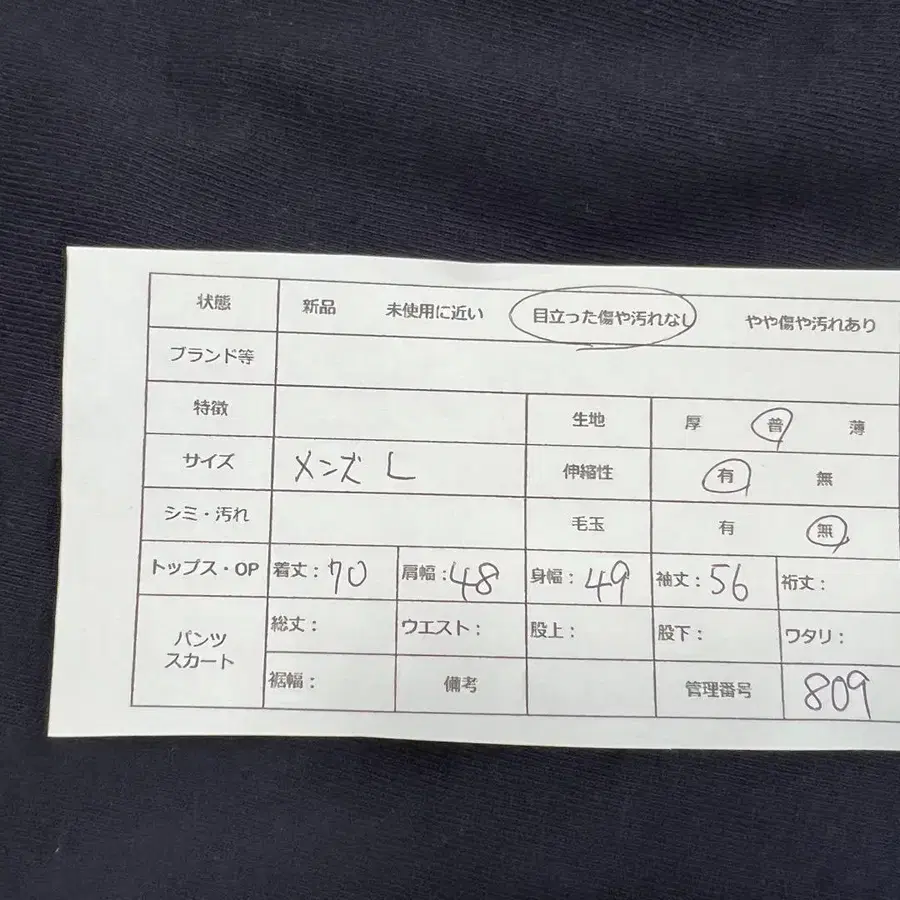 状態 新品 未使用に近い 目立った傷や汚れなし やや傷や汚れあり
ブランド等
特徴 生地 厚 普 薄
サイズ メンズ L 伸縮性 有 無
シミ・汚れ 毛玉 有 無
トップス・OP 着丈：70 肩幅：48 身幅：49 袖丈：56 裄丈：
パンツ スカート 総丈： ウエスト： 股上： 股下： ワタリ：
裾幅： 備考 管理番号 809